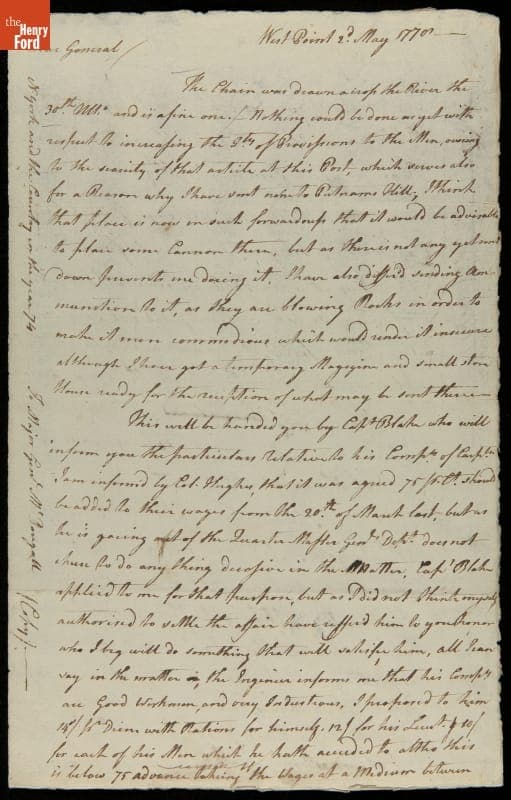 the
Henry
Ford
Dear General/
West Point 2d. May 1778 —
The Chain was drawn across the River the
30th. Ulto. and is a fine one. Nothing could be done as yet with
respect to increasing the Qty. of Provissions to the Men, owing
to the scarcity of that article at this Post, which serves also
for a Reason why I have sent none to Putnams Hill; I think
that place is now in such forwardness that it would be adviseable
to place some Cannon there, but as there is not any yet sent
down prevents me doeing it. I have also differd sending Am-
munition to it, as they are blowing Rocks in order to
make it more commodious which would render it insecure
although I have got a temporary Magizine and small store
House ready for the reception of what may be sent there —
This will be handed you by Capt. Blake who will
inform you the particulars relative to his Compy. of Carptrs.
I am informd by Col. Hughes, that it was agreed 75 pr. Ct. should
be added to their wages from the 20th. of March last, but as
he is goeing out of the Quarter Master Genl. Dept. does not
chuse to do any thing decisive in the Matter, Capt. Blake
applied to me for that purpose, but as I did not think myself
authorised to settle the affair have refferd him to your honor
who I beg will do something that will satisfie him, all I can
say in the matter is, the Engineer informs me that his Compy.
are Good Workmen, and very Industrious, I proposed to him
15/ pr. Diem with Rations for himself. 12/ for his Lieut. & 10/
for each of his Men which he hath acceeded to altho this
is below 75 advance takeing the wages at a Medium between
N York and the Country in the year 74
To Major Genl. McDougall
(Copy) —